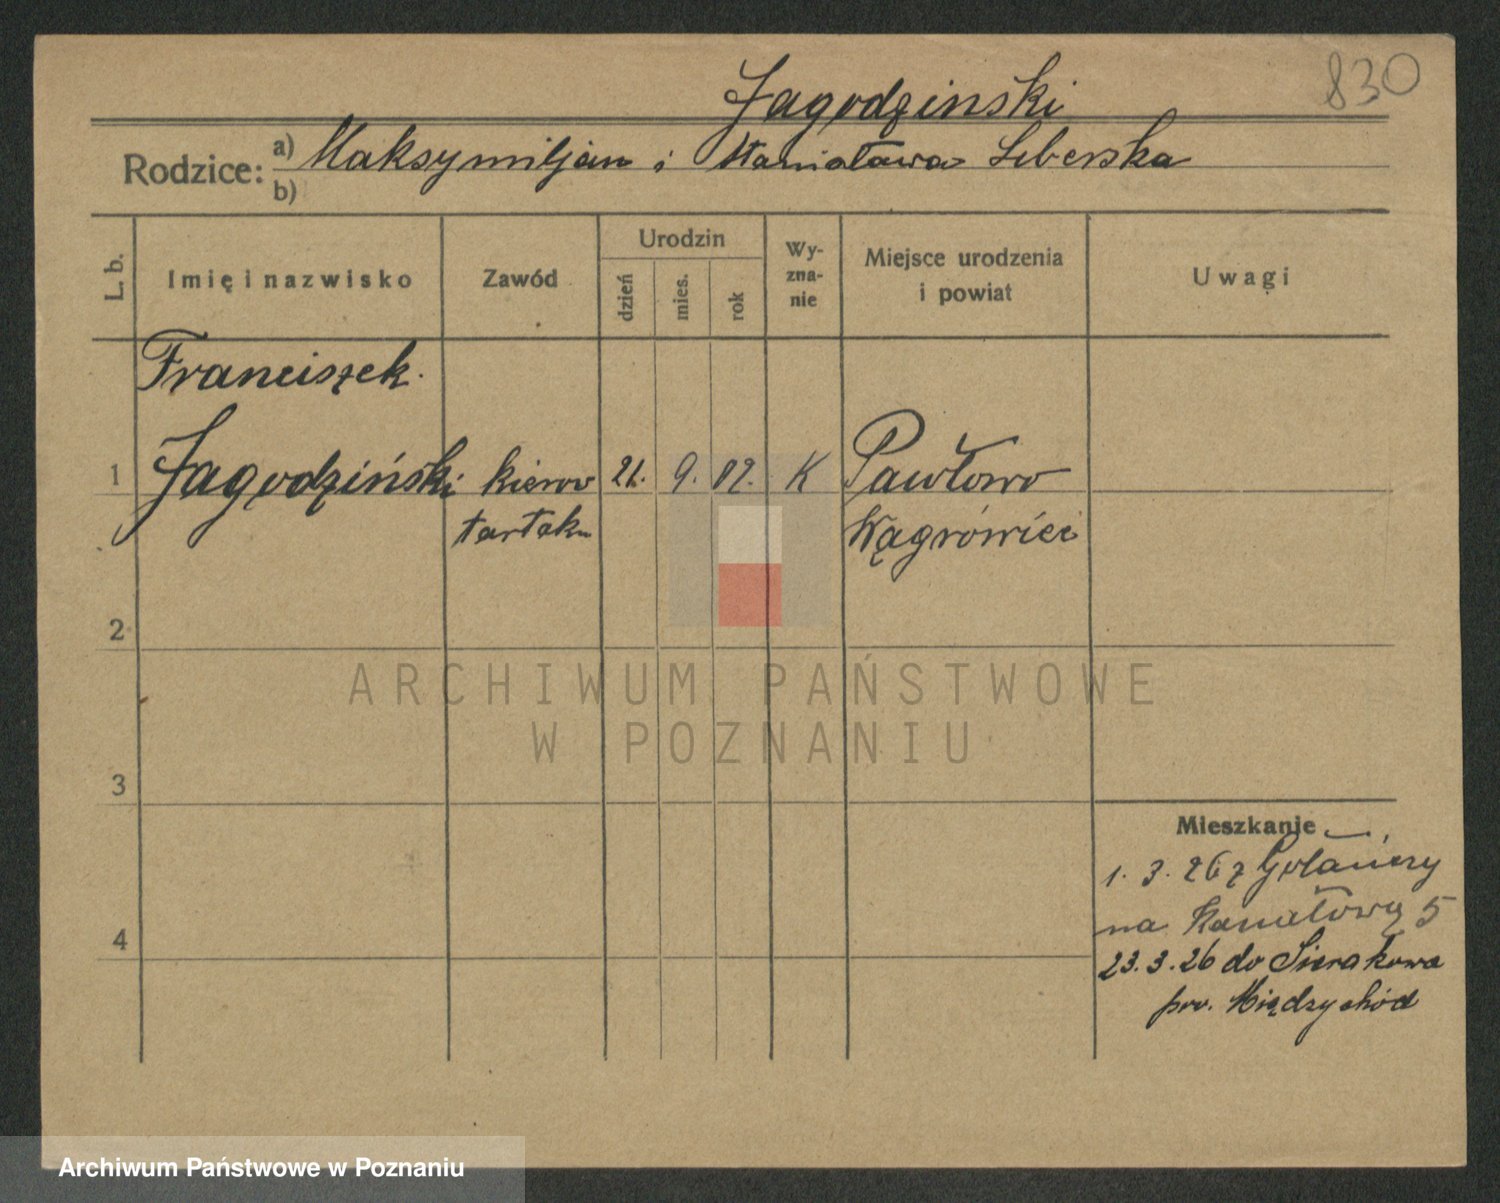 830
Jagodzinski
Rodzice: a) Maksymiljan i Stanisława Liberska
b)
L. b. Imię i nazwisko Zawód Urodzin dzień mies. rok Wy-zna-nie Miejsce urodzenia i powiat Uwagi
Franciszek
1 Jagodziński kierow 21. 9. K Pawłowo
tartaku Wągrówiec
2
3
4
Mieszkanie
1. 3. 26 z Gołańczy
na Kanałową 5
23.3.26 do Sierakowa
pow. Międzychód
ARCHIWUM PAŃSTWOWE
W POZNANIU
Archiwum Państwowe w Poznaniu